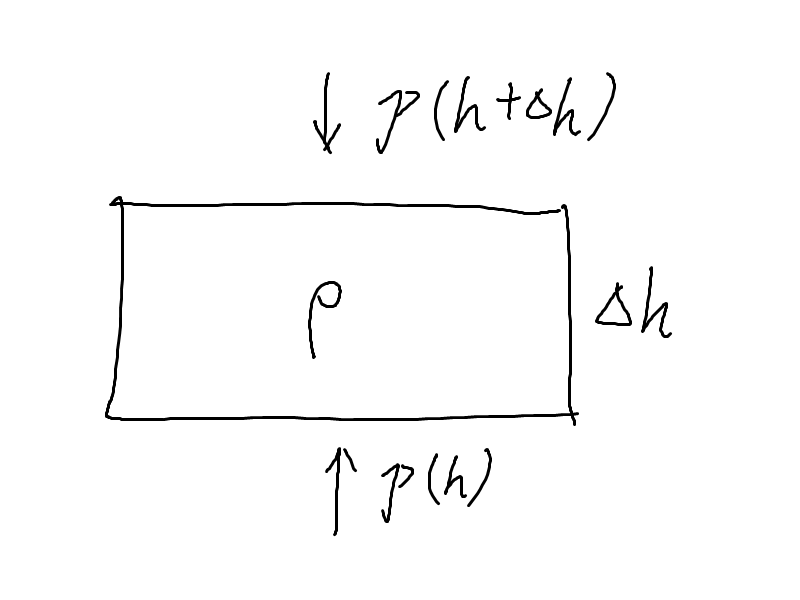 ↓ p(h+Δh)
ρ
Δh
↑ p(h)